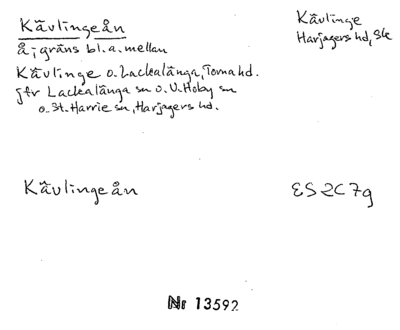 Kävlingeån
Kävlinge
Harjagers hd, Sk
å; gräns bl.a. mellan
Kävlinge o. Lackalänga, Torna hd.
jfr Lackalänga sn o. V. Hoby sn
o. St. Harrie sn, Harjagers hd.
Kävlingeån
ES 2C 7g
Nr 13592